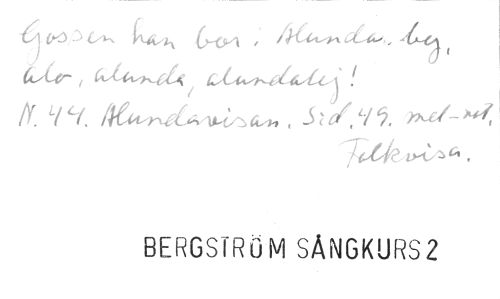 Gossen han bor i Alunda by,
alo, alunda, alundalej!
N. 44. Alundavisan. Sid. 49. mel-not.
Folkvisa.
BERGSTRÖM SÅNGKURS 2